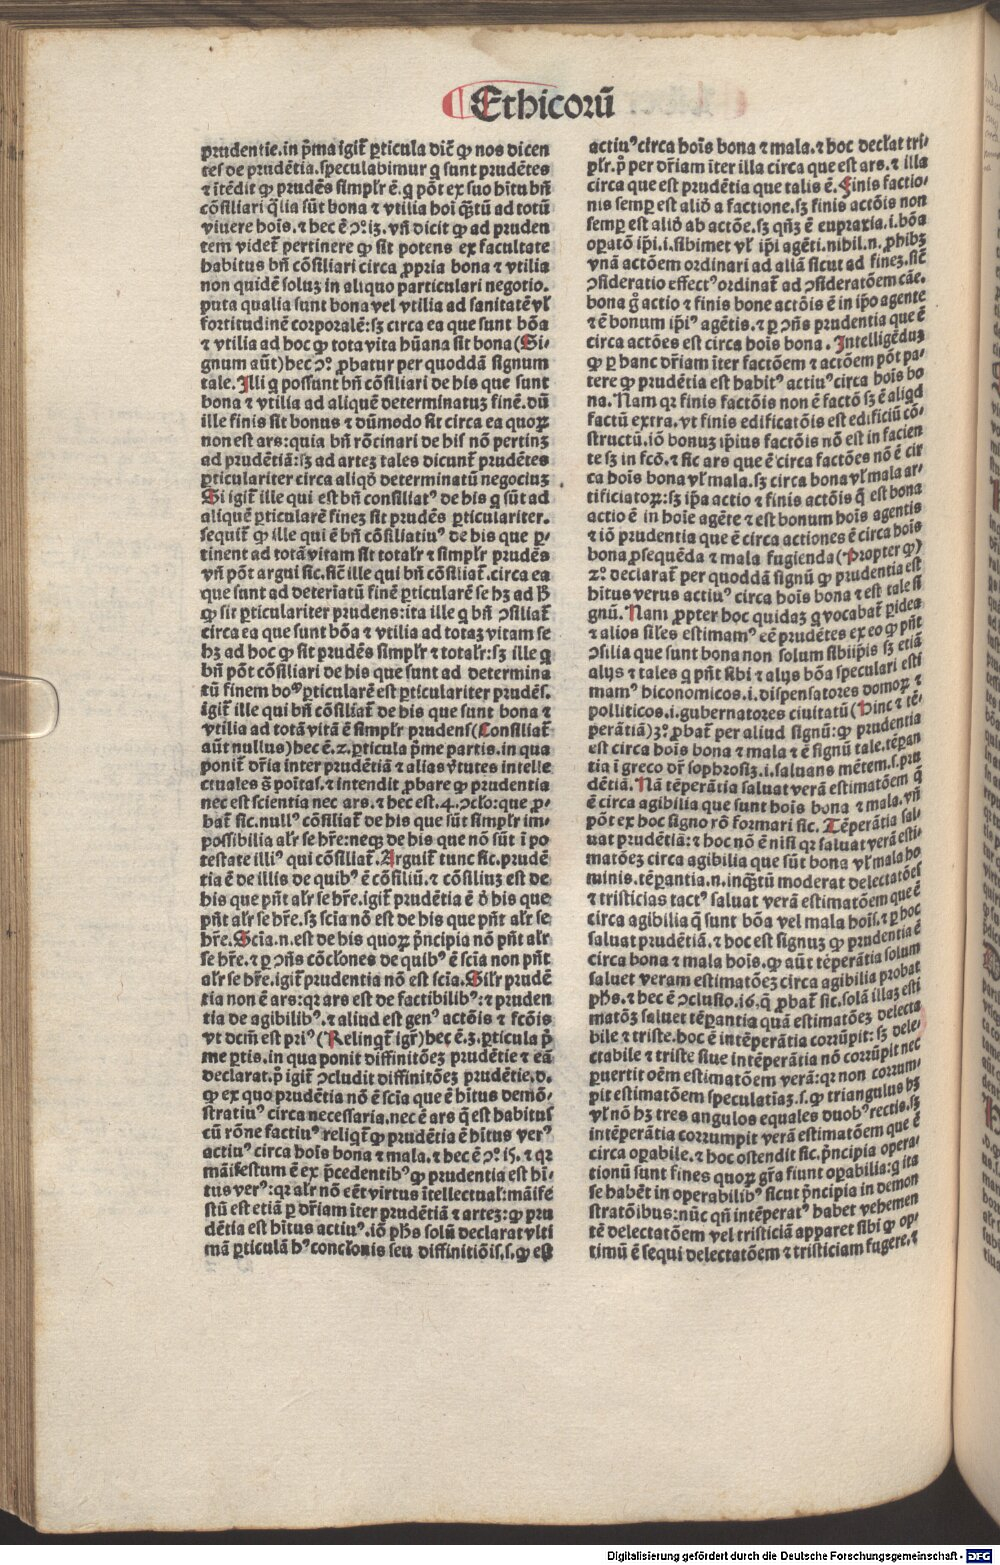 Ethicorū
prudentie. in p̄ma igit̄ ꝑticula dic̄ ꝙ nos dicen
tes de prudētia. speculabimur q̄ sunt prudētes
⁊ ītēdit ꝙ prudēs simplr̄ ē. q pōt ex suo hītu bn̄
cōsiliari q̄lia sūt bona ⁊ vtilia hoī q̄ꝫtū ad totū
viuere hoīs. ⁊ hec ē ꝯ.ͦ 13. vn̄ dicit ꝙ ad pruden
tem videt̄ pertinere ꝙ sit potens ex facultate
habitus bn̄ cōsiliari circa ꝓpria bona ⁊ vtilia
non quidē soluꝫ in aliquo particulari negotio.
puta qualia sunt bona vel vtilia ad sanitatē vl̄
fortitudinē corporalē: sꝫ circa ea que sunt bōa
⁊ vtilia ad hoc ꝙ tota vita hūana sit bona (Si-
gnum aūt) hec ꝯ.ͦ ꝓbatur per quoddā signum
tale. Illi q possunt bn̄ cōsiliari de his que sunt
bona ⁊ vtilia ad aliquē determinatuꝫ finē. dū
ille finis sit bonus ⁊ dūmodo sit circa ea quoꝝ
non est ars: quia bn̄ rōcinari de his nō pertinꝫ
ad prudētiā: sꝫ ad arteꝫ tales dicunt̄ prudētes
ꝑticulariter circa aliqđ determinatū negociuꝫ
Si igit̄ ille qui est bn̄ consiliatꝰ de his q̄ sūt ad
aliquē ꝑticularē fineꝫ sit prudēs ꝑticulariter.
sequit̄ ꝙ ille qui ē bn̄ cōsiliatiuꝰ de his que ꝑ-
tinent ad totā vitam sit totalr̄ ⁊ simplr̄ prudēs
vn̄ pōt argui sic. sic̄ ille qui bn̄ cōsiliat̄. circa ea
que sunt ad determinatū finē ꝑticularē se hꝫ ad
ꝙ sit ꝑticulariter prudens: ita ille q bn̄ ꝯsiliat̄
circa ea que sunt bōa ⁊ vtilia ad totaꝫ vitam se
hꝫ ad hoc ꝙ sit prudēs simplr̄ ⁊ totalr̄: sꝫ ille q
bn̄ pōt cōsiliari de his que sunt ad determina
tū finem ꝑticularē est ꝑticulariter prudēs.
igit̄ ille qui bn̄ cōsiliat̄ de his que sunt bona ⁊
vtilia ad totā vitā ē simplr̄ prudens (Consiliat̄
aūt nullus) hec ē. 2. ꝑticula p̄me partis. in qua
ponit dr̄ia inter prudētiā ⁊ alias v̄tutes intelle
ctuales s̄ poītas. ⁊ intendit ꝓbare ꝙ prudentia
nec est scientia nec ars. ⁊ hec est. 4. ꝯclo: que ꝓ-
bat̄ sic. nullꝰ cōsiliat̄ de his que sūt simplr̄ im-
possibilia alr̄ se hr̄e: neqꝫ de his que nō sūt ī po
testate illiꝰ qui cōsiliat̄. Arguit̄ tunc sic. prudē
tia ē de illis de quibꝰ ē cōsiliū. ⁊ cōsiliuꝫ est de
his que pn̄t alr̄ se hr̄e. igit̄ prudētia ē đ his que
pn̄t alr̄ se hr̄e. sꝫ scīa nō est de his que pn̄t alr̄ se
hr̄e. Scīa. n. est de his quoꝝ p̄ncipia nō pn̄t alr̄
se hr̄e. ⁊ ꝑ ꝯn̄s cōclones de quibꝰ ē scīa non pn̄t
alr̄ se hr̄e. igit̄ prudentia nō est scīa. Silr̄ prudē
tia non ē ars: qꝛ ars est de factibilibꝰ: ⁊ pruden
tia de agibilibꝰ. ⁊ aliud est genꝰ actōis ⁊ fcōis
vt dcm̄ est priꝰ (Relinqt̄ igr̄) hec ē. 3. ꝑticula p̄
me ꝑtis. in qua ponit diffinitōeꝫ prudētie ⁊ eā
declarat. p̄ igit̄ ꝯcludit diffinitōeꝫ prudētie. d.
ꝙ ex quo prudētia nō ē scīa que ē hītus demō-
stratiuꝰ circa necessaria. nec ē ars q̄ est habitus
cū rōne factiuꝰ relinqt̄ ꝙ prudētia ē hītus verꝰ
actiuꝰ circa hoīs bona ⁊ mala. ⁊ hec ē ꝯ.ͦ 15. ⁊ qꝛ
māifestum ē ex p̄cedentibꝰ ꝙ prudentia est hī-
tus verꝰ: qꝛ alr̄ nō eēt virtus ītellectual: māife
stū est etiā ꝑ dr̄iam īter prudētiā ⁊ arteꝫ: ꝙ pru
dētia est hītus actiuꝰ. iō ph̄s solū declarat vlti
mā ꝑticulā hꝰ conclonis seu diffinitiōis. s. ꝙ est
actiuꝰ circa hoīs bona ⁊ mala. ⁊ hoc declat tri-
plr̄. p̄ per dr̄iam īter illa circa que est ars. ⁊ illa
circa que est prudētia que talis ē. Finis factio-
nis semꝑ est aliđ a factione. sꝫ finis actōis non
semꝑ est aliđ ab actōe. sꝫ qn̄ꝫ ē eupraxia. i. bōa
oꝑatō ip̄i. i. sibimet vl̄ ip̄i agēti. nihil. n. ꝓhibꝫ
vnā actōem ordinari ad aliā sicut ad fineꝫ. sic̄
ꝯsideratio effectꝰ ordinat̄ ad ꝯsideratōem cāe.
bona g̊ actio ⁊ finis bone actōis ē in ip̄o agente
⁊ ē bonum ip̄iꝰ agētis. ⁊ ꝑ ꝯn̄s prudentia que ē
circa actōes est circa hoīs bona. Intelligēduꝫ
ꝙ ꝑ hanc dr̄iam īter factōem ⁊ actōem pōt pa-
tere ꝙ prudētia est habitꝰ actiuꝰ circa hoīs bo
na. Nam qꝛ finis factōis non ē factō sꝫ ē aliqđ
factū extra. vt finis edificatōis est edificiū cō-
structū. iō bonuꝫ ip̄ius factōis nō est in facien
te sꝫ in fcō. ⁊ sic ars que ē circa factōes nō ē cir
ca hoīs bona vl̄ mala. sꝫ circa bona vl̄ mala ar-
tificiatoꝝ: sꝫ ip̄a actio ⁊ finis actōis q̄ est bona
actio ē in hoīe agēte ⁊ est bonum hoīs agentis
⁊ iō prudentia que ē circa actiones ē circa hoīs
bona ꝓsequēda ⁊ mala fugienda (Propter ꝙ)
2.ͦ declarat̄ per quoddā signū ꝙ prudentia est
hītus verus actiuꝰ circa hoīs bona ⁊ est tale si
gnū. Nam ꝓpter hoc quidaꝫ q vocabat̄ ꝑidea
⁊ alios siles estimamꝰ eē prudētes ex eo ꝙ pn̄t
ꝯsilia que sunt bona non solum sibiip̄is sꝫ etiā
alys ⁊ tales q pn̄t sibi ⁊ alys bōa speculari esti
mamꝰ hiconomicos. i. dispensatores domoꝝ ⁊
polliticos. i. gubernatores ciuitatū (Hinc ⁊ tē-
perātiā) 3.ͦ ꝓbat̄ per aliud signū: ꝙ prudentia
est circa hoīs bona ⁊ mala ⁊ ē signū tale. tēꝑan
tia ī greco dr̄ sophrosiꝫ. i. saluans mētem. s. pru
dētiā. Nā tēperātia saluat verā estimatōem q̄
ē circa agibilia que sunt hoīs bona ⁊ mala. vn̄
pōt ex hoc signo rō formari sic. Tēperātia sal-
uat prudētiā: ⁊ hoc nō ē nisi qꝛ saluat verā esti-
matōeꝫ circa agibilia que sūt bona vl̄ mala ho
minis. tēꝑantia. n. inq̄ꝫtū moderat delectatōes
⁊ tristicias tactꝰ saluat verā estimatōem que ē
circa agibilia q̄ sunt bōa vel mala hoīs. ⁊ ꝑ hoc
saluat prudētiā. ⁊ hoc est signuꝫ ꝙ prudentia ē
circa bona ⁊ mala hoīs. ꝙ aūt tēperātia solum
saluet veram estimatōeꝫ circa agibilia probat
ph̄s. ⁊ hec ē ꝯclusio. 16. q̄ ꝓbat̄ sic. solā illaꝫ esti
matōꝫ saluet tēꝑantia quā estimatōeꝫ delecta
bile ⁊ triste. hoc ē intēperātia corrūpit: sꝫ dele-
ctabile ⁊ triste siue intēperātia nō corrūpit nec
ꝑuertit oēm estimatōem verā: qꝛ non corrum-
pit estimatōem speculatiaꝫ. s. ꝙ triangulus hꝫ
vl̄ nō hꝫ tres angulos equales duobꝰ rectis. sꝫ
intēperātia corrumpit verā estimatōem que ē
circa oꝑabile. ⁊ hoc ostendit sic. p̄ncipia opera-
tionū sunt fines quoꝝ gr̄a fiunt oꝑabilia: q ita
se habēt in operabilibꝰ sicut p̄ncipia in demon
stratōibus: nūc qn̄ intēperatꝰ habet vehemen
tē delectatōem vel tristiciā apparet sibi ꝙ op-
timū ē sequi delectatōem ⁊ tristiciam fugere. ⁊
Digitalisierung gefördert durch die Deutsche Forschungsgemeinschaft - DFG